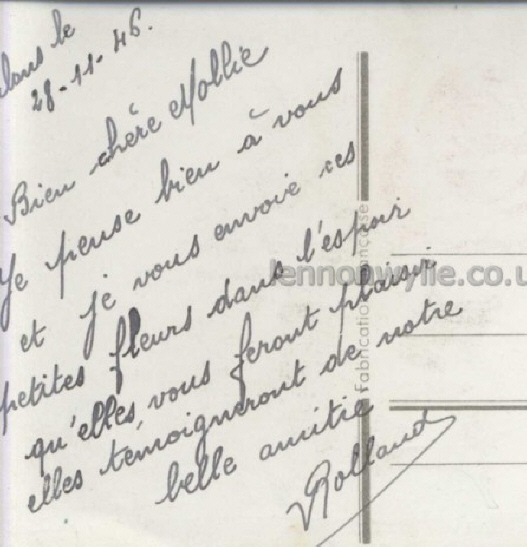 le
28-11-46.
Bien chère Mollie
Je pense bien à vous
et je vous envoie ces
petites fleurs dans l'espoir
qu'elles vous feront plaisir
elles témoigneront de notre
belle amitié
Rolland
Fabrication Française
lennonwylie.co.u